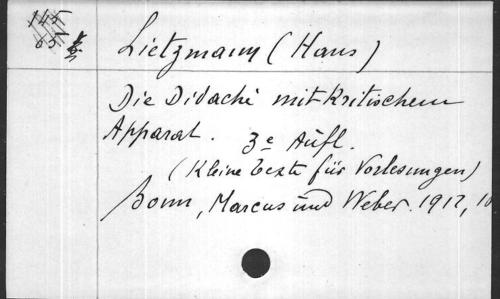 Lietzmann (Hans)
Die Didachè mit Kritischem
Apparat. 3e Aufl.
(Kleine Texte für Vorlesungen)
Bonn, Marcus und Weber. 1912,